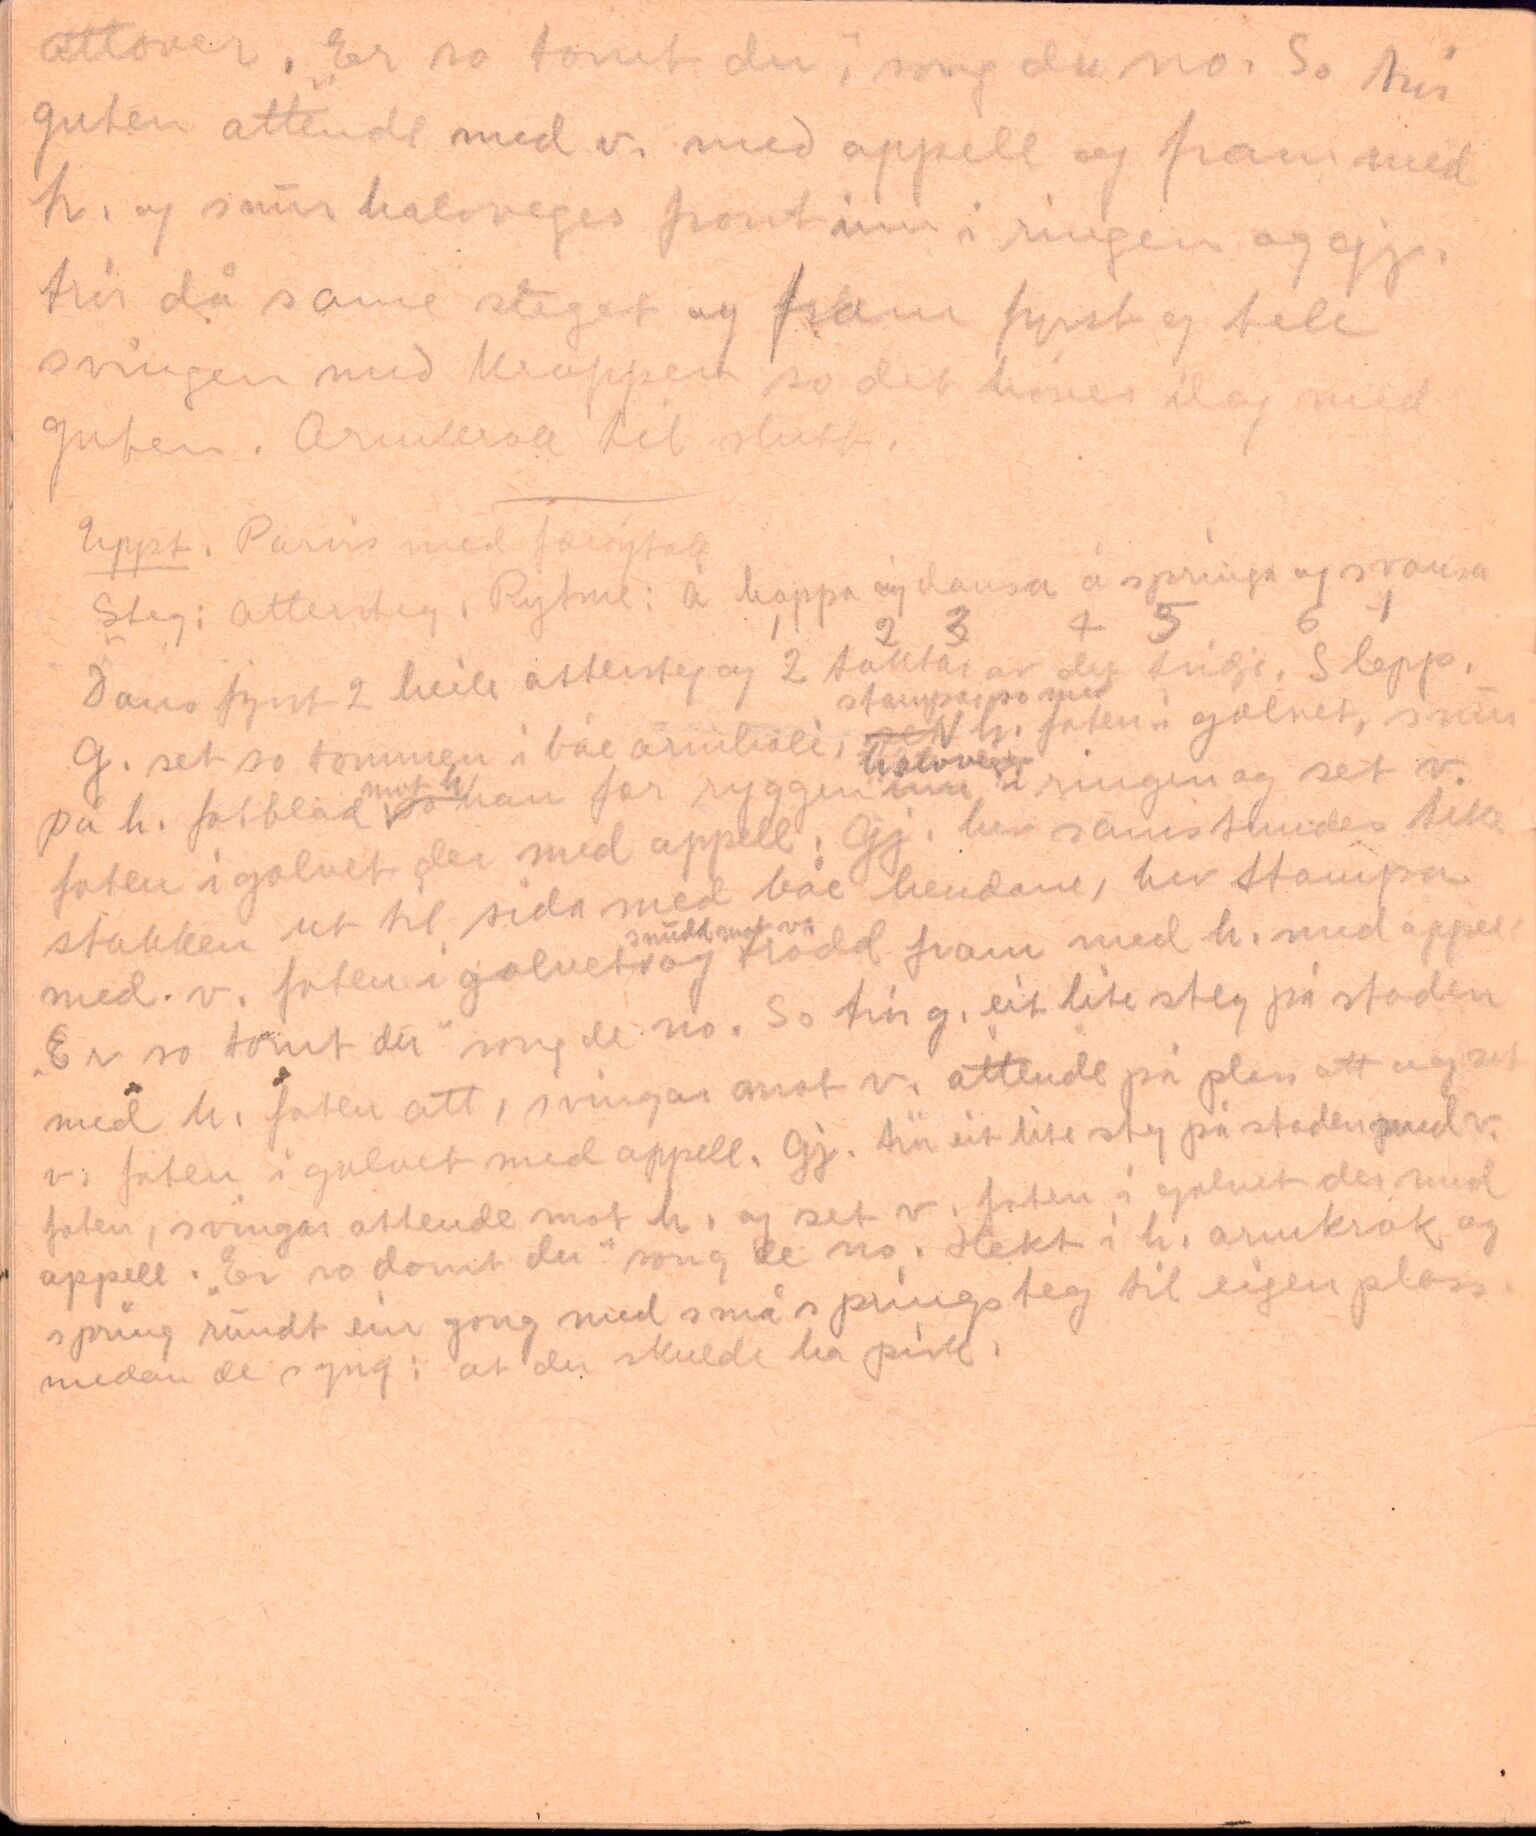 attover. "Er so tomt der", song de no. So trir
guten attende med v. med appell og fram med
h. og snur halvveges front inn i ringen og gj.
trir då same steget og fram fyrst og tek
svingen med kroppen so det høves ilag med
guten. Armkrok til slutt.
Uppst. Parvis med færøytak
Steg: Attersteg. Rytme: Å hoppa og dansa å springa og svansa
1 2 3 4 5 6 1
Dans fyrst 2 heile attersteg og 2 taktar av det tridje. Slepp.
G. set so tommen i båe armholi, stampar so med h. foten i golvet, snur
på h. fotblad mot h. ryggen inn i ringen og set v.
foten i golvet der med appell. Gj. hev samstundes teke
stakken ut til sida med båe hendane, hev stampa
med v. foten i golvet, snudd mot v. og trødd fram med h. med appell
"Er so tomt der" song de no. So trir g. eit lite steg på staden
med h. foten att, svingar mot v. attende på plass att og set
v. foten i golvet med appell. Gj. trir eit lite steg på staden med v.
foten, svingar attende mot h. og set v. foten i golvet der med
appell. "Er so domt der" song de no. Hekt i h. armkrok og
spring rundt ein gong med små springsteg til eigen plass
medan de syng: at der skulde ha